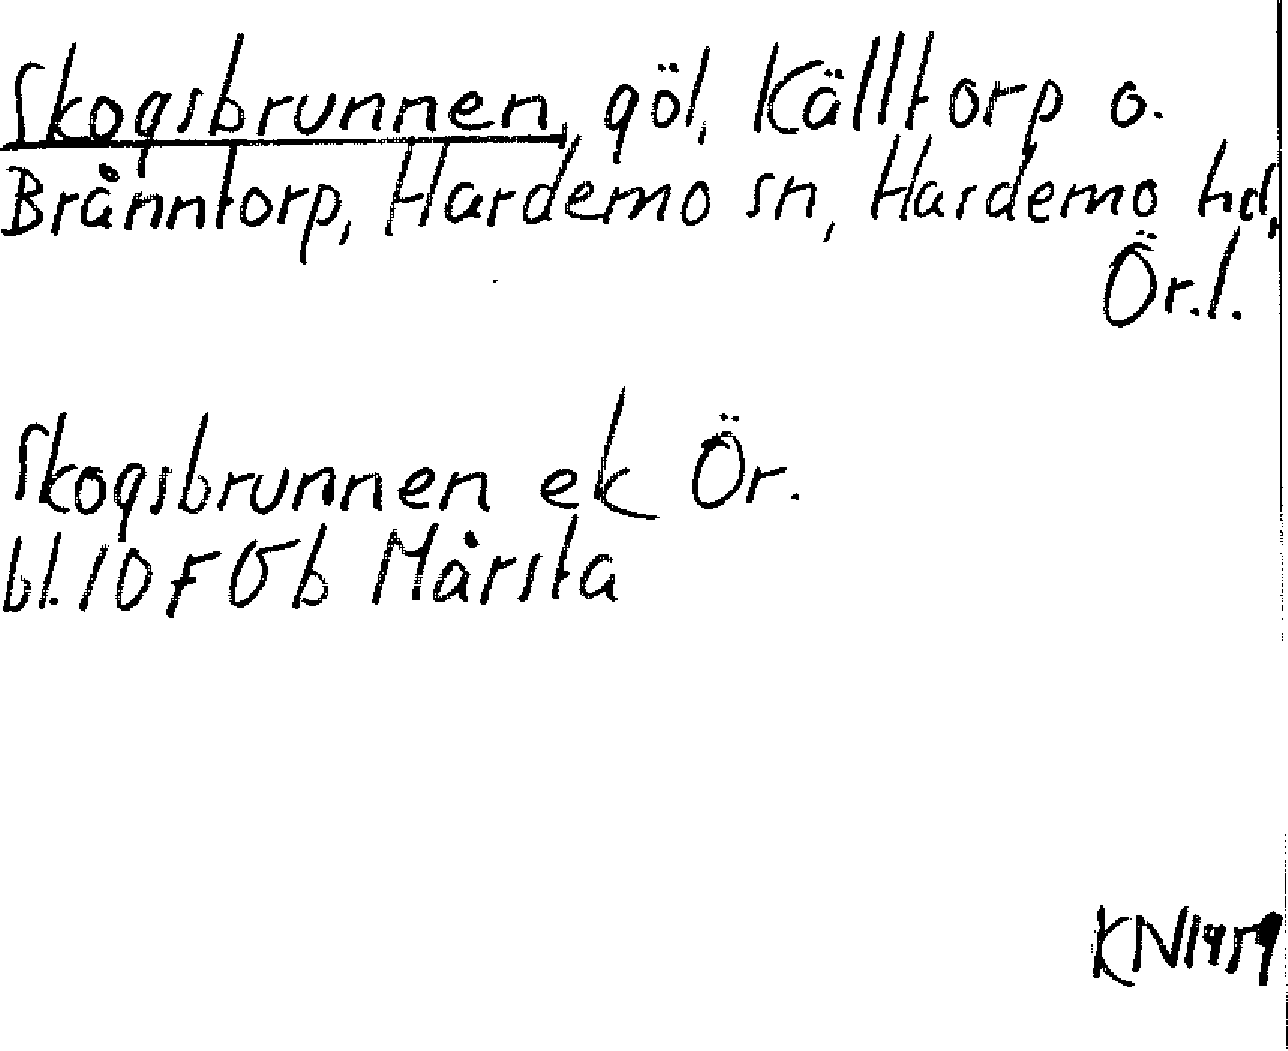 Skogsbrunnen, göl, Källtorp o.
Brånntorp, Hardemo sn, Hardemo hd,
Ör.l.
Skogsbrunnen ek Ör.
bl. 10 F 0 b Mårsta
KN 1959